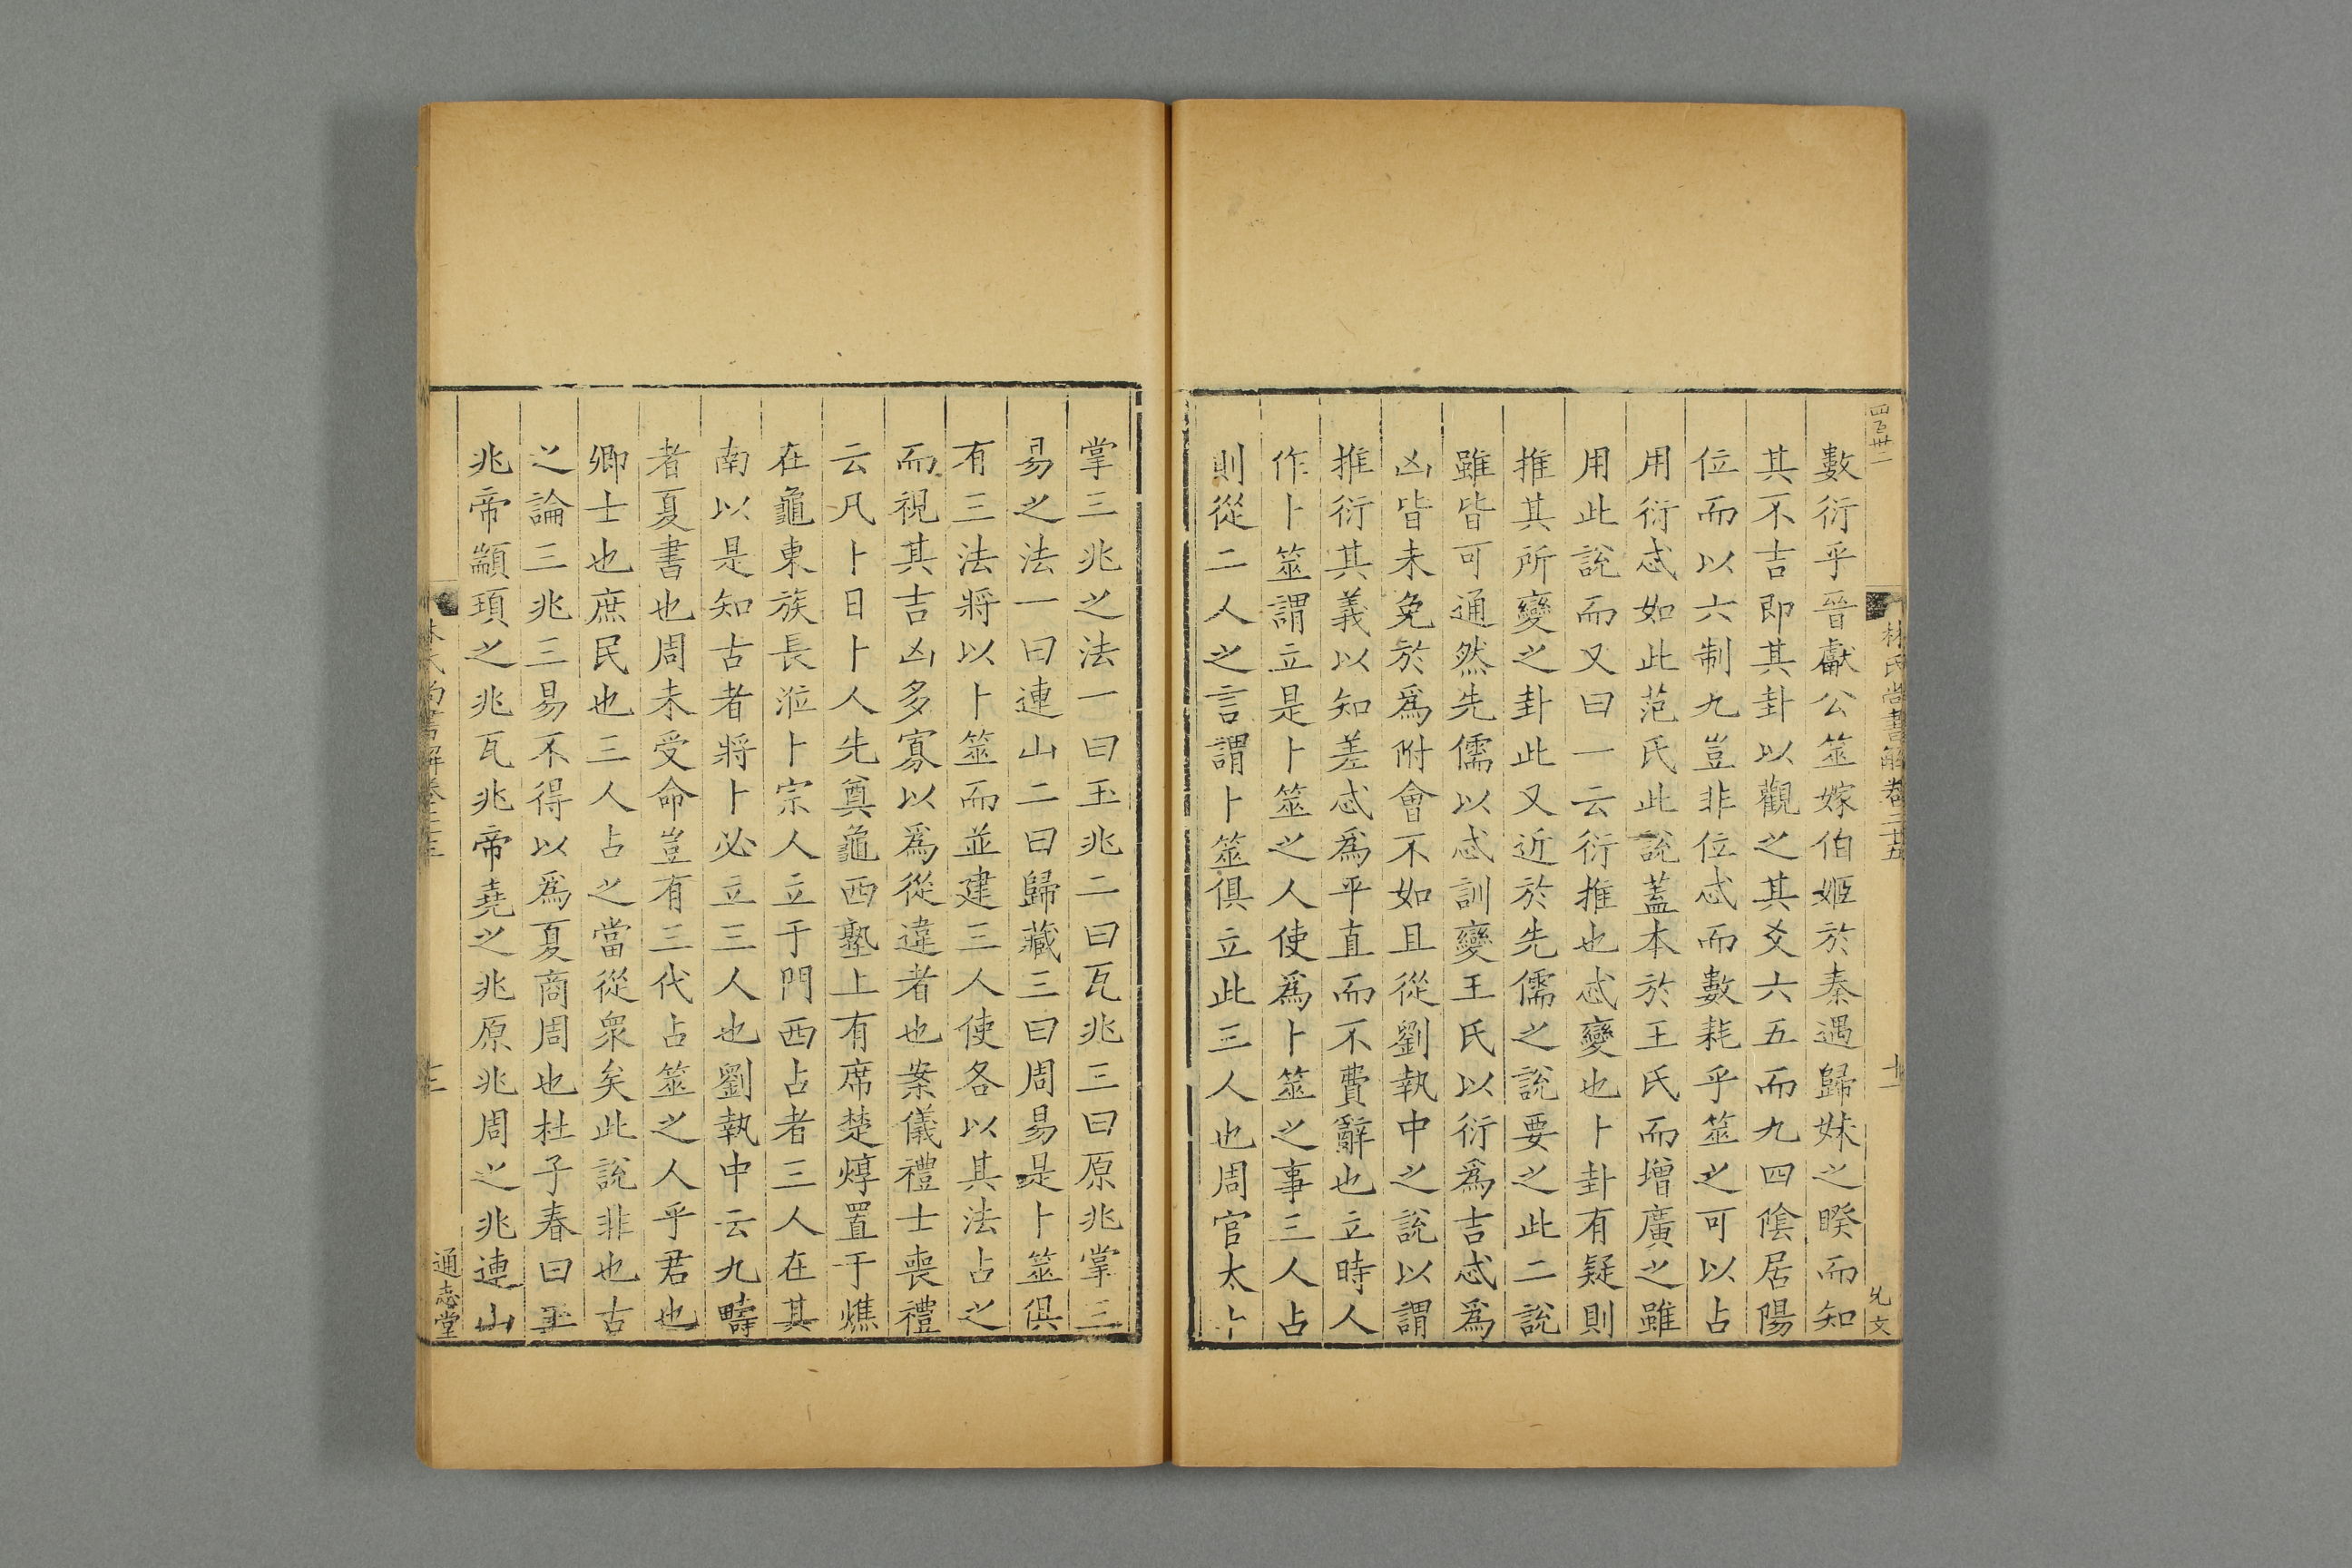 四百卅二
林氏尚書解卷二十五
十一
允文
數衍乎晉獻公筮嫁伯姬於秦遇歸妹之睽而知
其不吉即其卦以觀之其爻六五而九四陰居陽
位而以六制九豈非位忒而數耗乎筮之可以占
用衍忒如此范氏此說蓋本於王氏而增廣之雖
用此說而又曰一云衍推也忒變也卜卦有疑則
推其所變之卦此又近於先儒之說要之此二說
雖皆可通然先儒以忒訓變王氏以衍爲吉忒爲
凶皆未免於爲附會不如且從劉執中之說以謂
推衍其義以知差忒爲平直而不費辭也立時人
作卜筮謂立是卜筮之人使爲卜筮之事三人占
則從二人之言謂卜筮俱立此三人也周官太卜
掌三兆之法一曰玉兆二曰瓦兆三曰原兆掌三
易之法一曰連山二曰歸藏三曰周易是卜筮俱
有三法將以卜筮而並建三人使各以其法占之
而視其吉凶多寡以爲從違者也案儀禮士喪禮
云凡卜日卜人先奠龜西塾上有席楚焞置于燋
在龜東族長涖卜宗人立于門西占者三人在其
南以是知古者將卜必立三人也劉執中云九疇
者夏書也周未受命豈有三代占筮之人乎君也
卿士也庶民也三人占之當從衆矣此說非也古
之論三兆三易不得以爲夏商周也杜子春曰玉
兆帝顓頊之兆瓦兆帝堯之兆原兆周之兆連山
林氏尚書解卷二十五
十二
通志堂